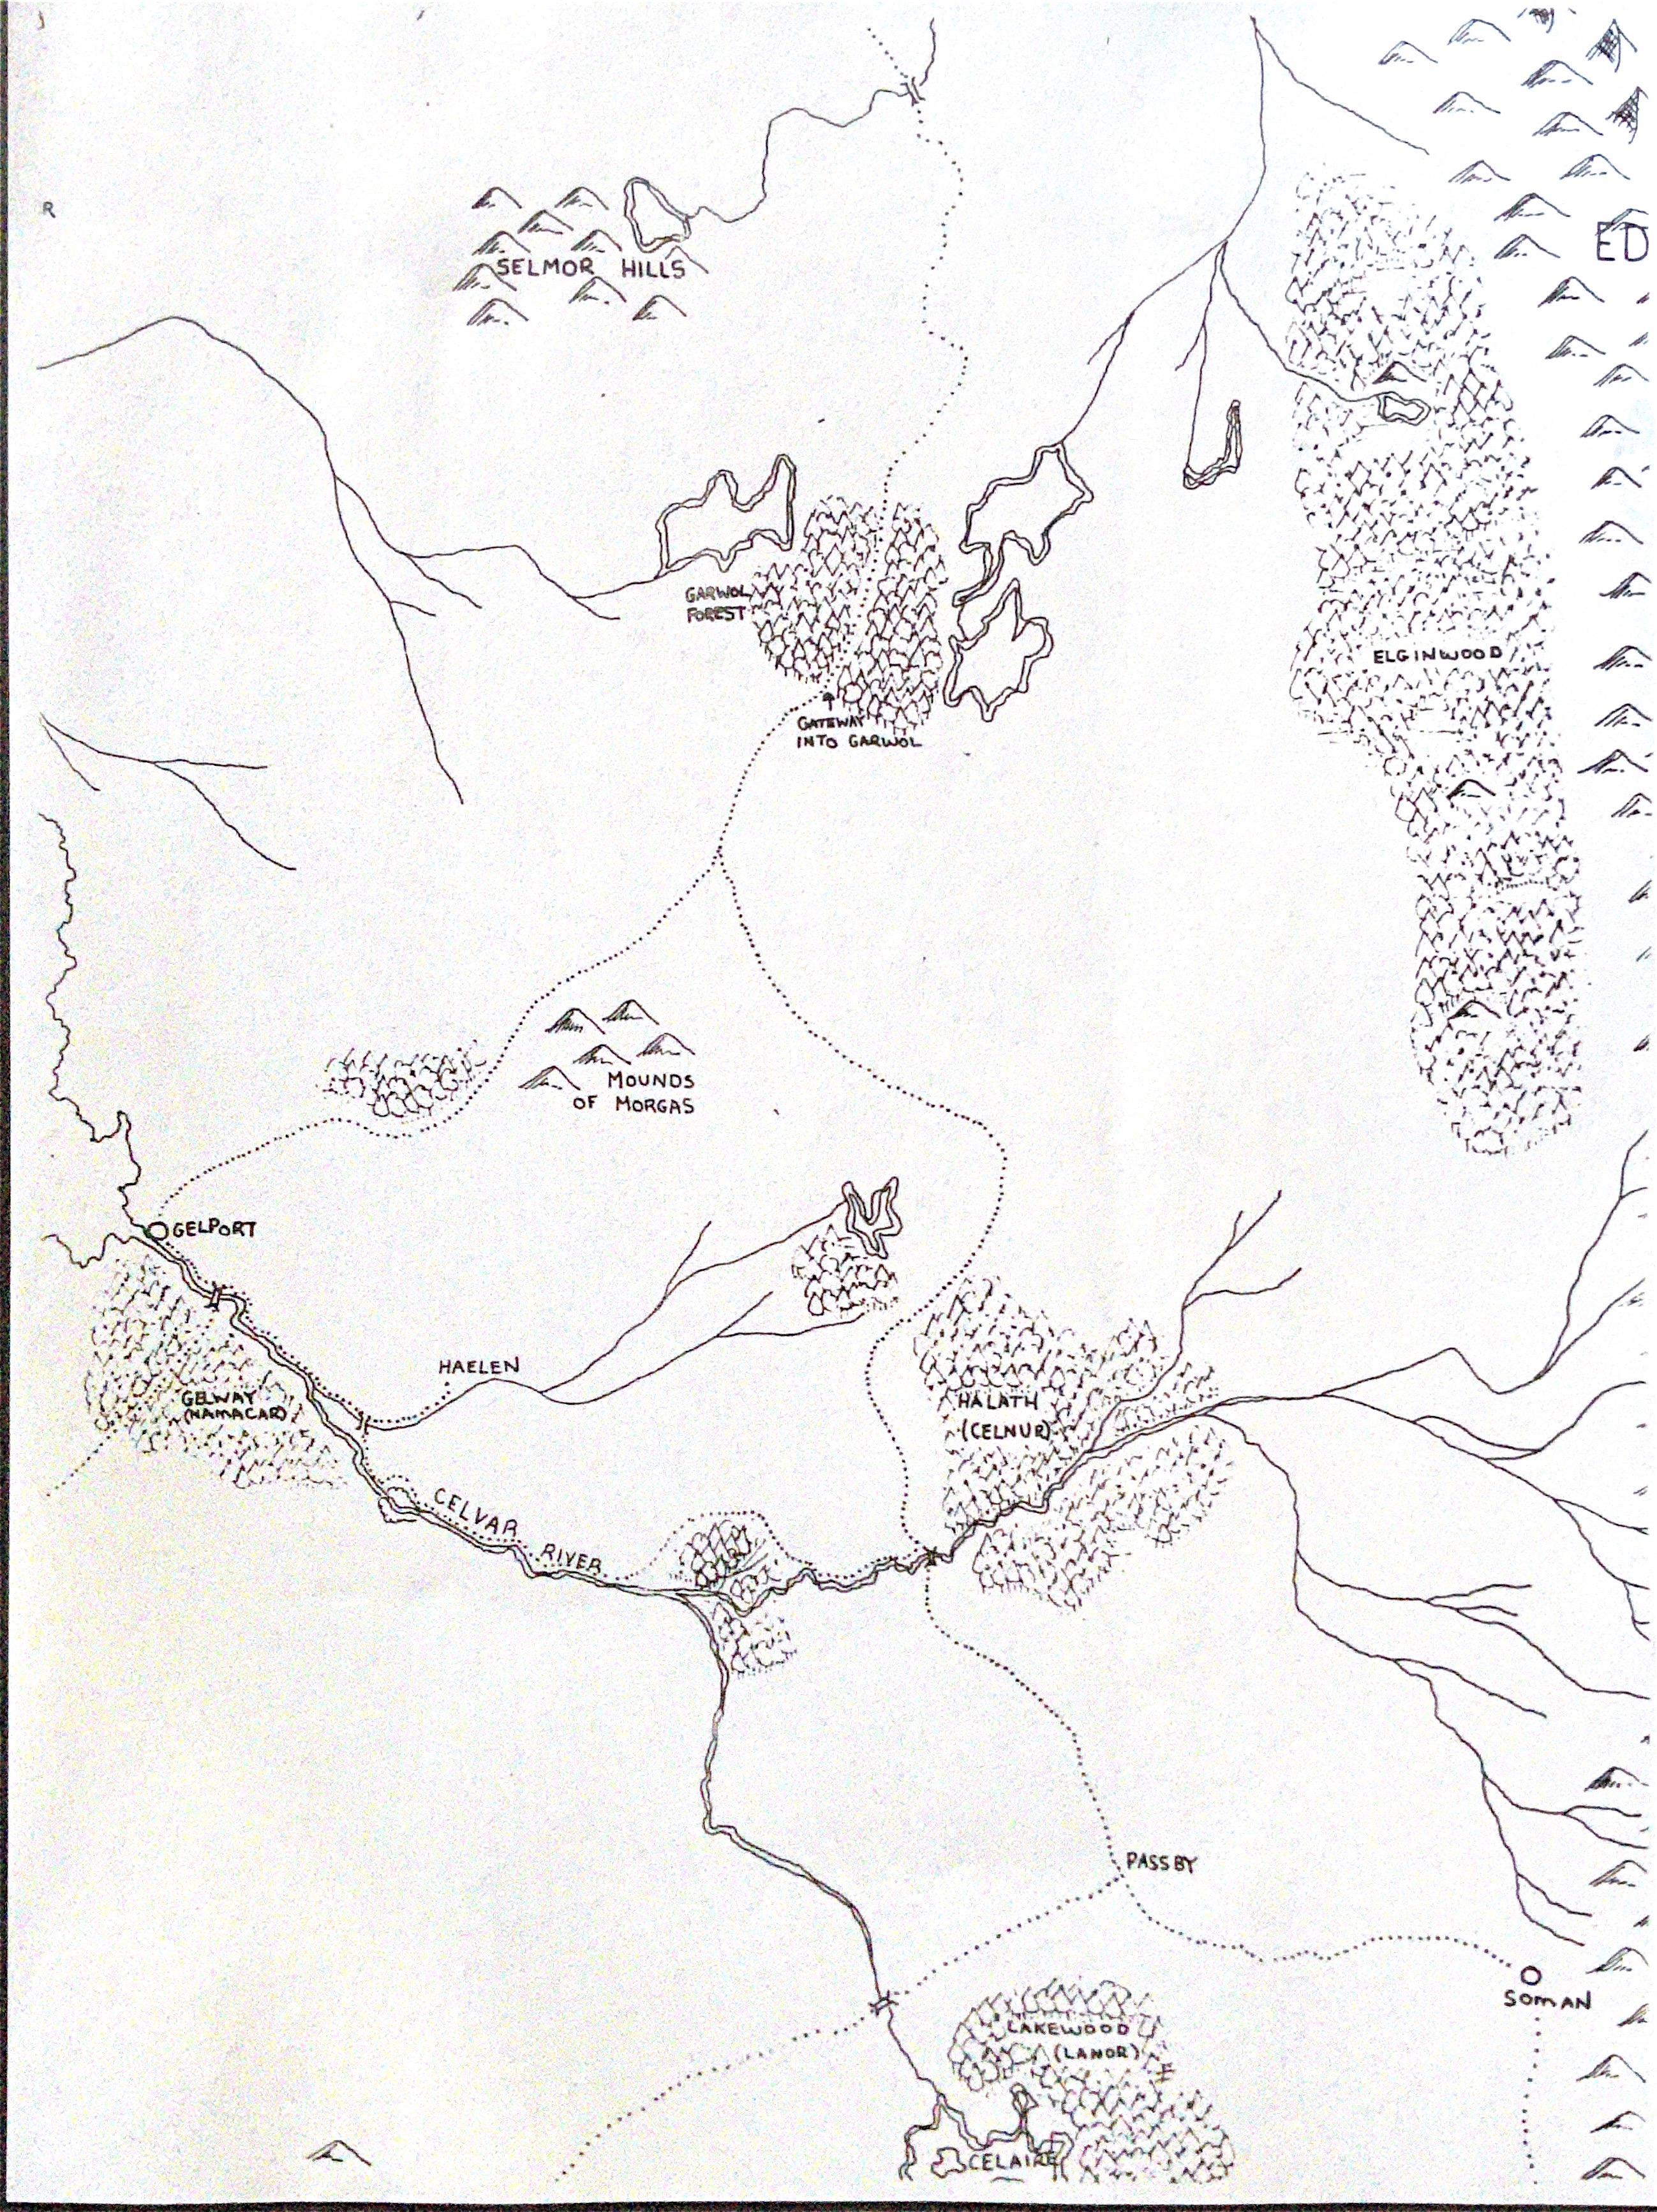 R
ED
SELMOR HILLS
GARWOL
FOREST
ELGINWOOD
GATEWAY
INTO GARWOL
MOUNDS
OF MORGAS
GELPORT
HAELEN
GELWAY
(NAMACAR)
HALATH
(CELNUR)
CELVAR
RIVER
PASSBY
SOMAN
LAKEWOOD
(LANOR)
CELAIRE